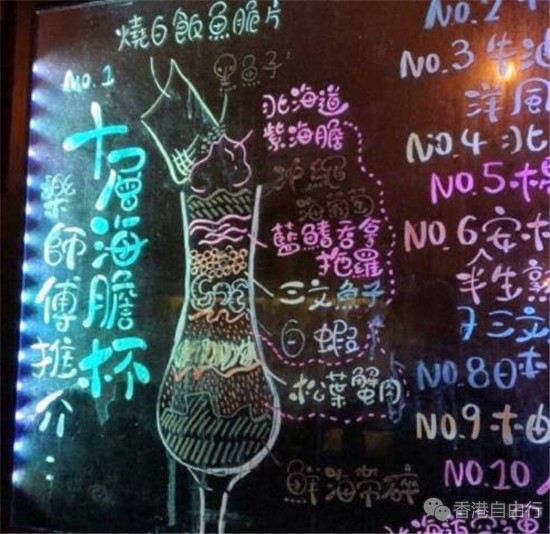 燒白飯魚脆片
NO.1
十層海膽杯
樂師傅推介：
魚子
北海道
紫海膽
沖繩
海葡萄
藍鰭吞拿
拖羅
三文魚子
白蝦
松葉蟹肉
鮮海帶碎
NO.2
NO.3 牛油
洋風
NO.4 北
NO.5
NO.6 安
半生熟
7 三文
NO.8 日本
NO.9 柚
NO.10
香港自由行